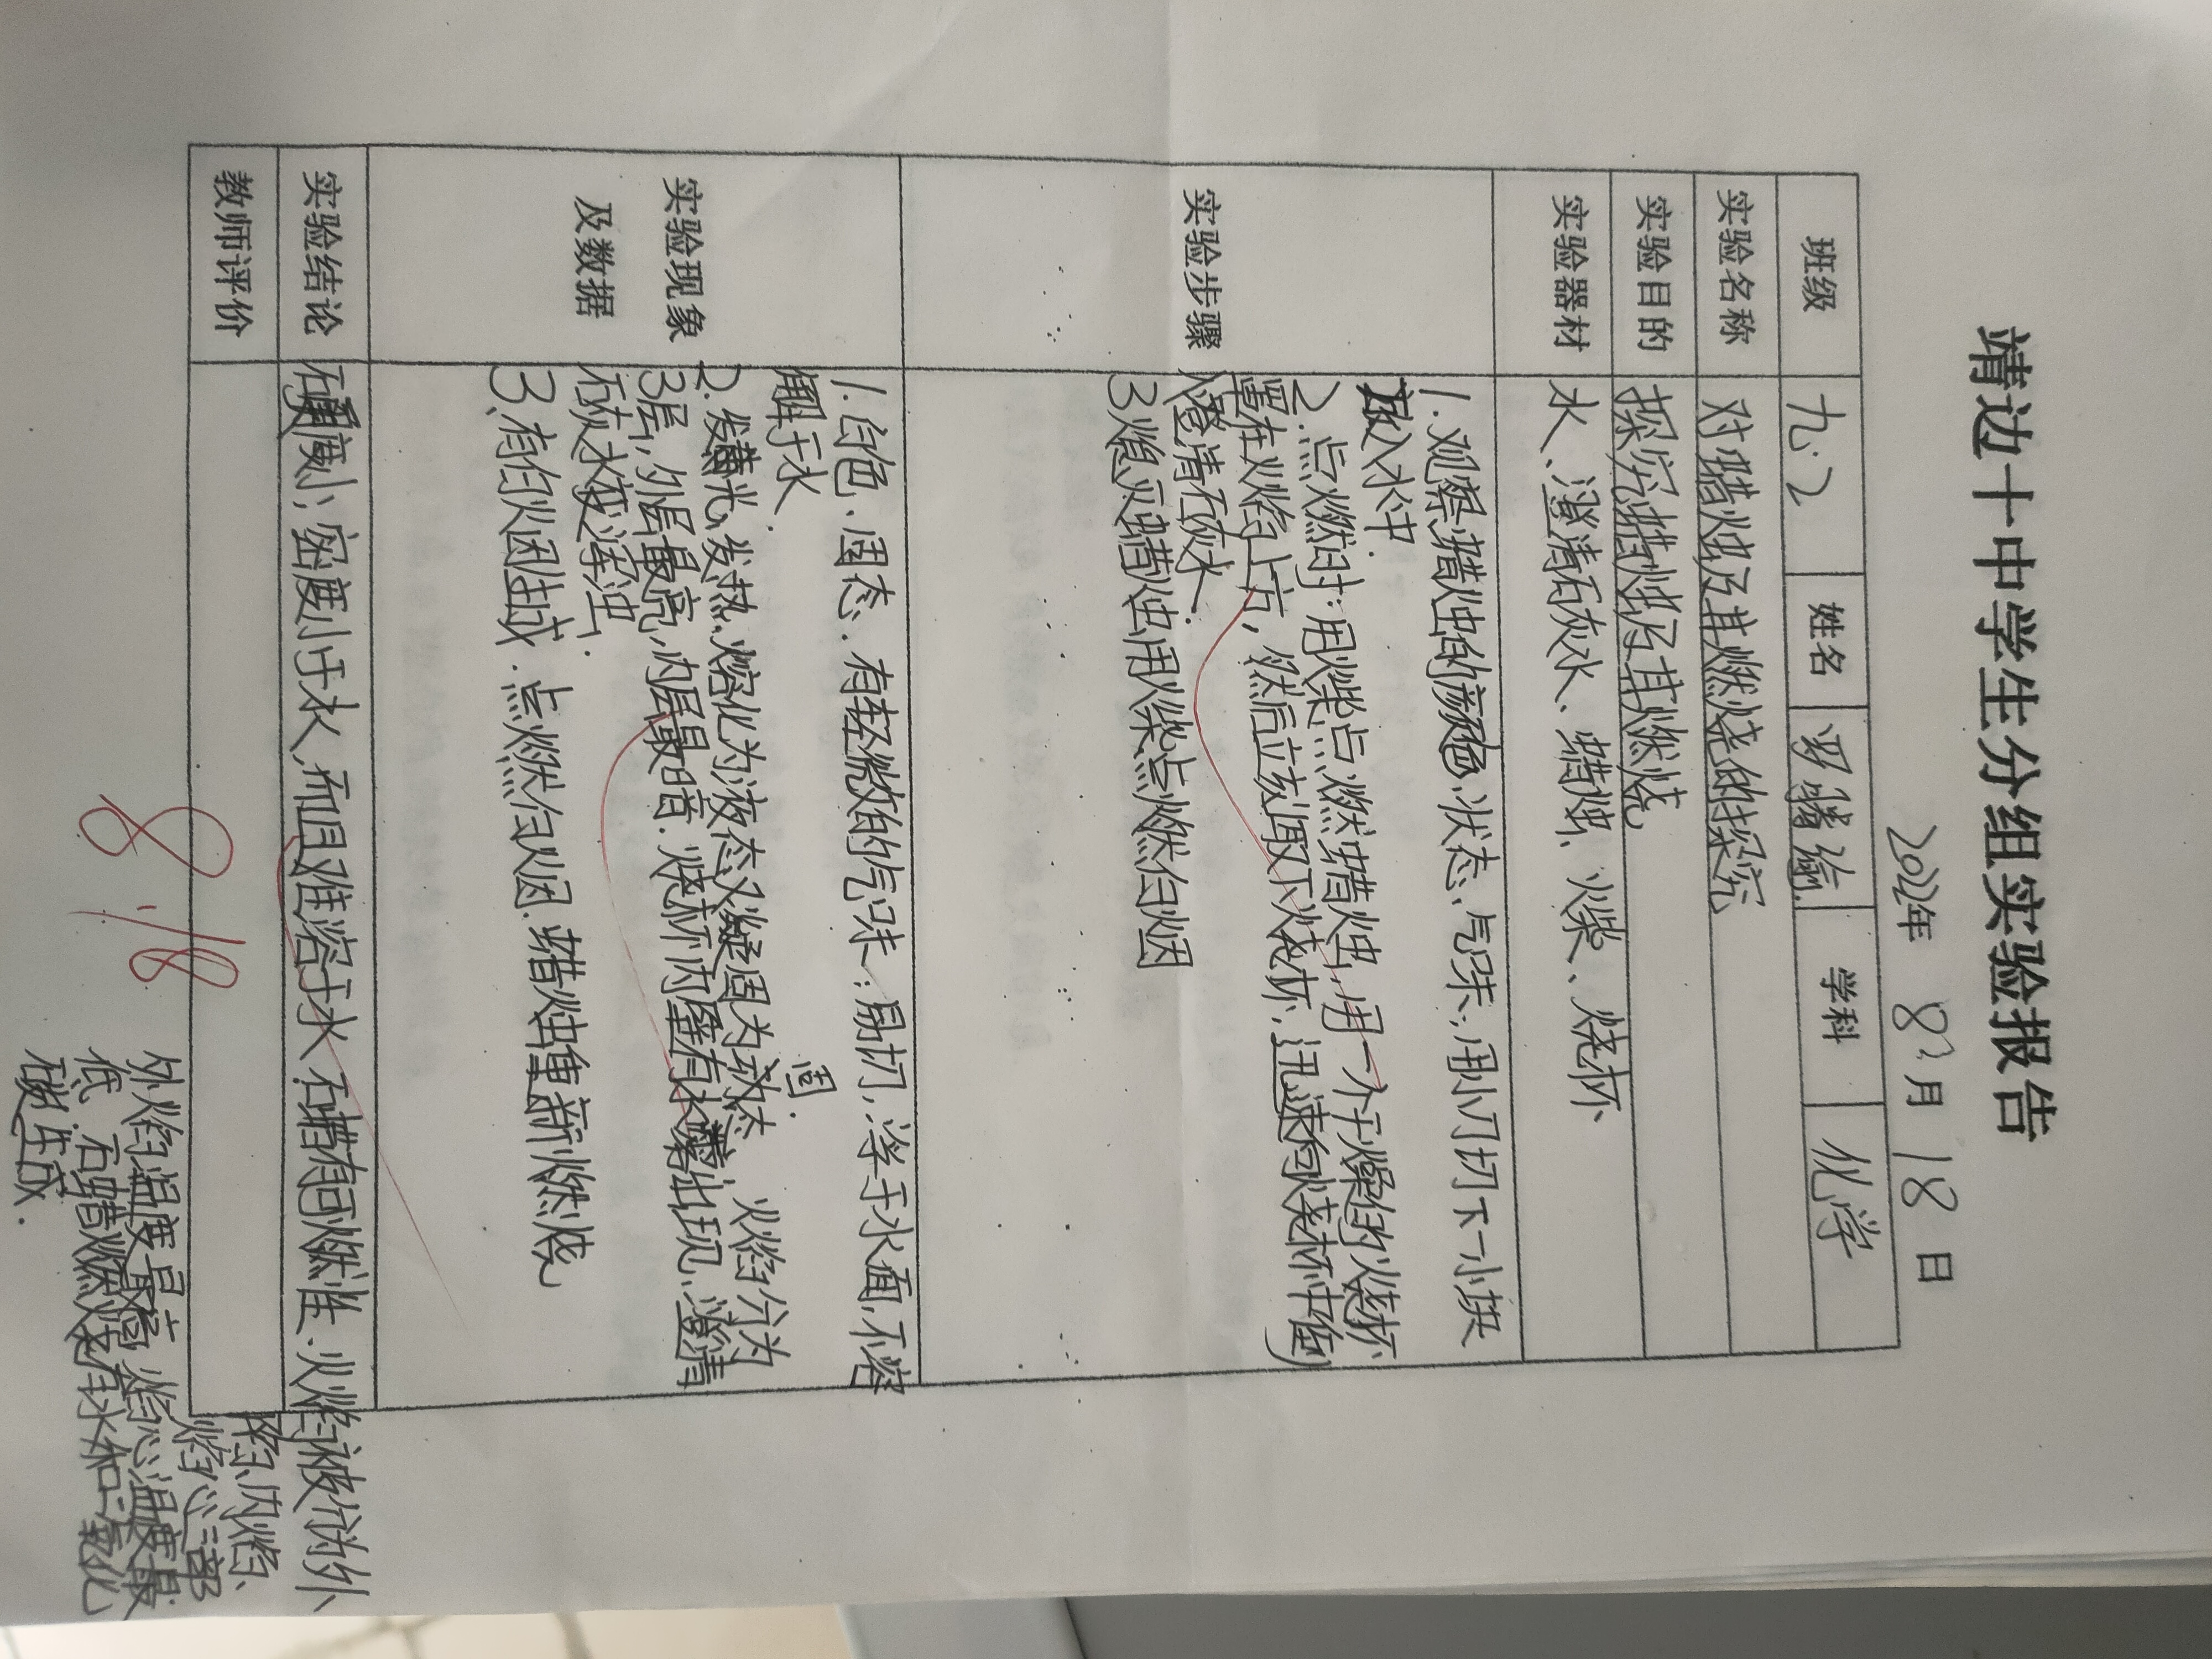 靖边十中学生分组实验报告
2022年 8月 18日
班级 九.2 姓名 罗腾瑜 学科 化学
实验名称 对蜡烛及其燃烧的探究
实验目的 探究蜡烛及其燃烧
实验器材 水、澄清石灰水、蜡烛、火柴、烧杯
实验步骤
1.观察蜡烛的颜色、状态、气味；用小刀切下一小块
放入水中.
2.点燃时：用火柴点燃蜡烛，用一个干燥的烧杯
罩在火焰上方，然后立刻取下烧杯，迅速向烧杯中倒
入澄清石灰水.
3熄灭蜡烛用火柴点燃白烟
实验现象
及数据
1.白色、固态、有轻微的气味；易切，浮于水面，不溶
解于水.
固
2.发黄光、发热、熔化为液态又凝固为态，火焰分为
3层，外层最亮，内层最暗.烧杯内壁有水雾出现，澄清
石灰水变浑浊.
3、有白烟生成.点燃白烟.蜡烛重新燃烧
实验结论
石蜡硬度小，密度小于水，而且难溶于水 石蜡有可燃性.火焰被分为外
焰、内焰、
焰心三部
外焰温度最高 焰心温度最
低.石蜡燃烧有水和二氧化
碳生成.
教师评价
8/18